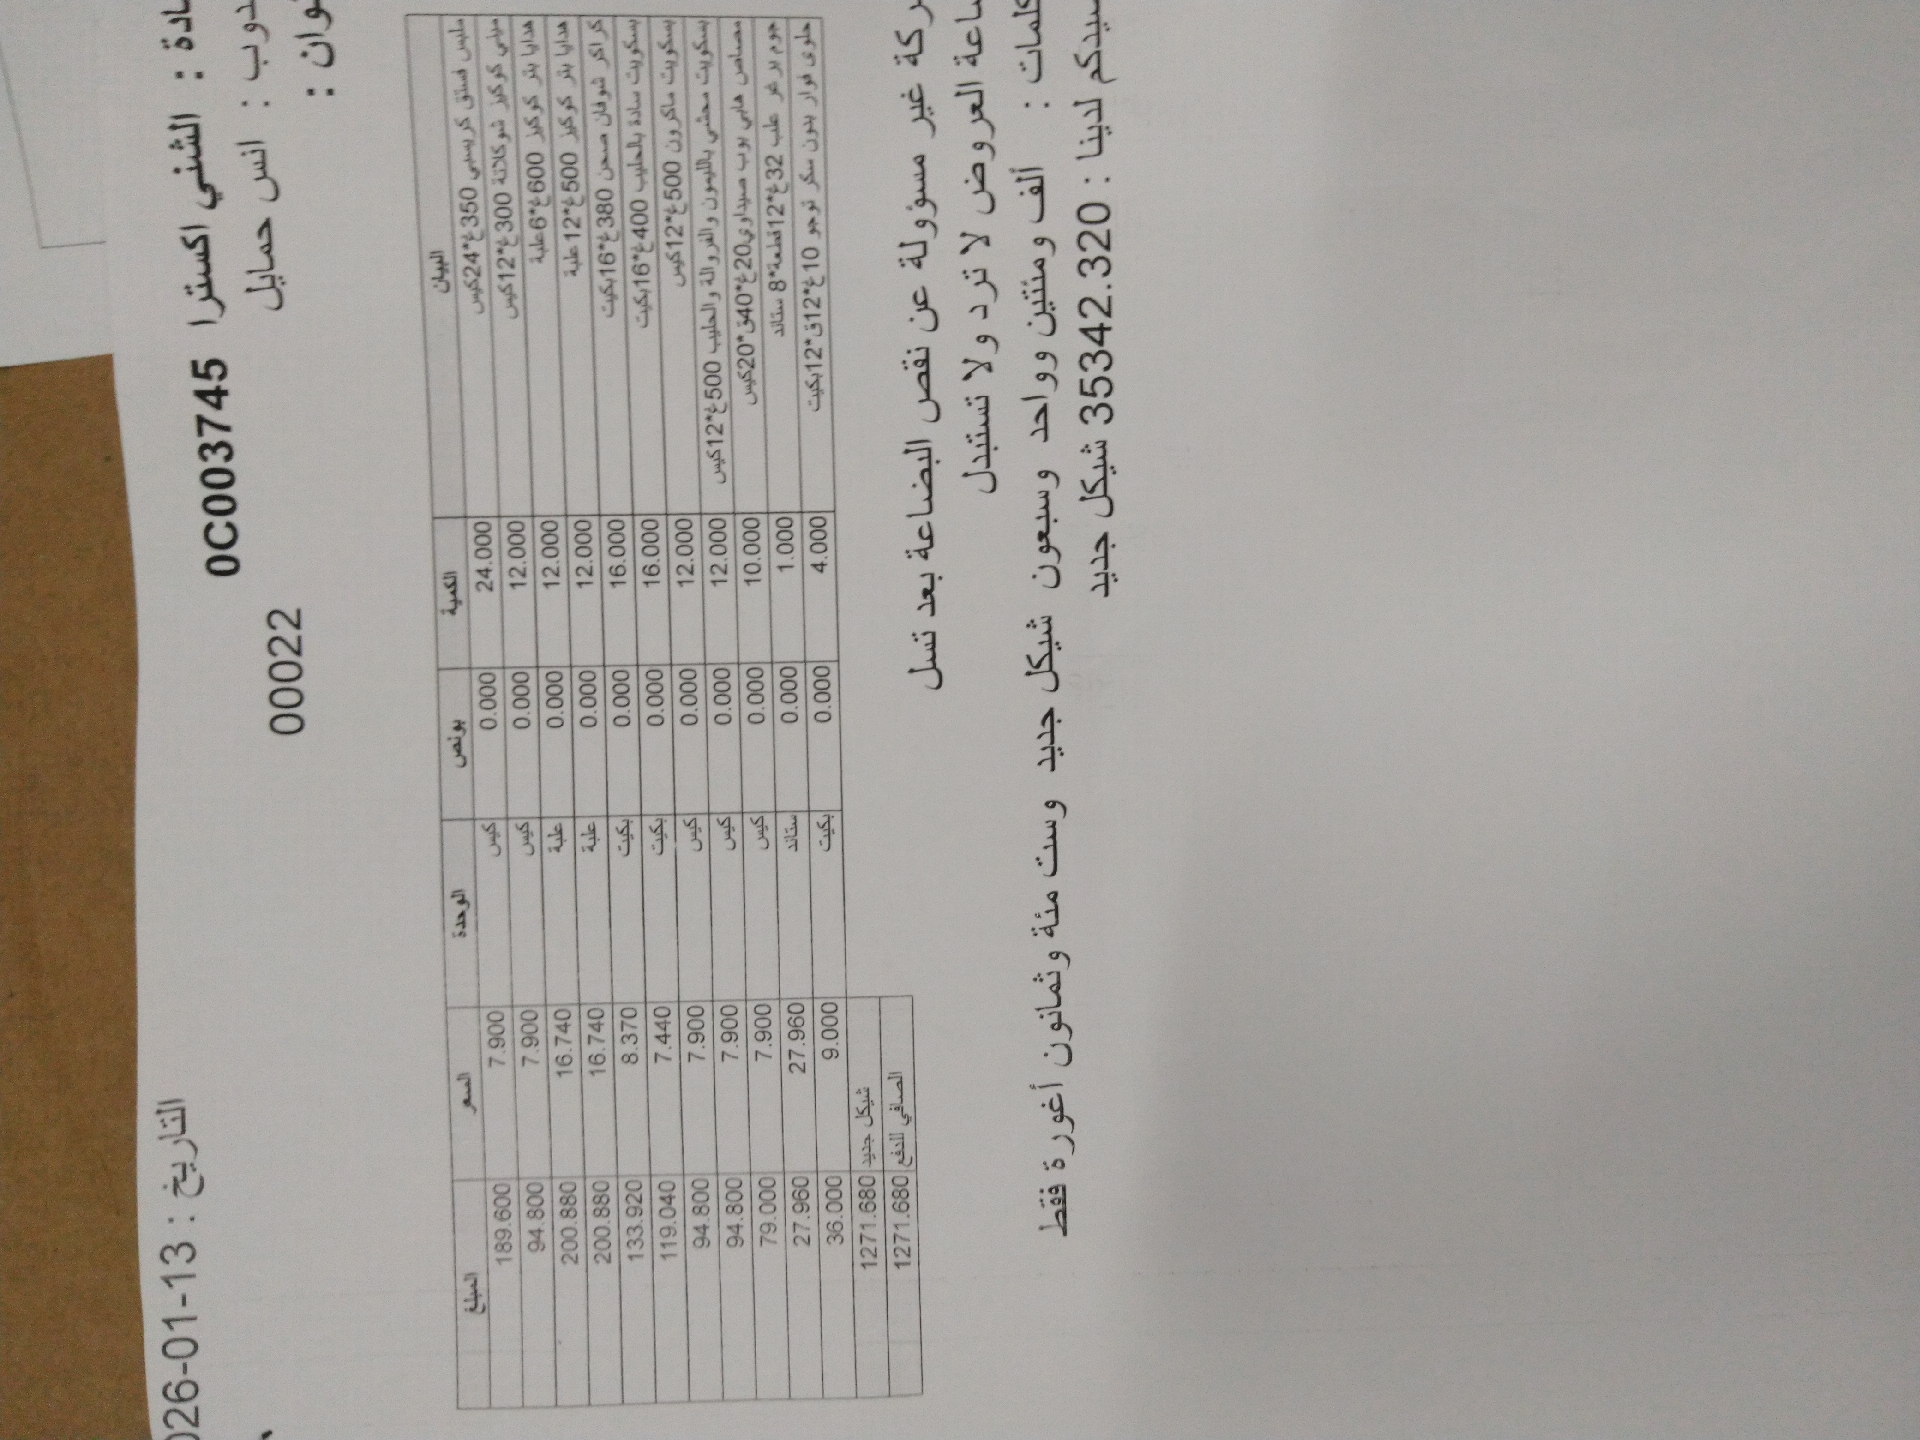 026-01-13 : التاريخ
الشني اكسترا 0C003745
انس حمايل
00022
البيان الكمية بونص الوحدة السعر المبلغ
ملبس فستق كريسبي 350غ*24كيس 24.000 0.000 كيس 7.900 189.600
ميني كوكيز شوكلاتة 300غ*12كيس 12.000 0.000 كيس 7.900 94.800
هدايا بتر كوكيز 600غ*6علبة 12.000 0.000 علبة 16.740 200.880
هدايا بتر كوكيز 500غ*12علبة 12.000 0.000 علبة 16.740 200.880
كراكر شوفان صحن 380غ*16بكيت 16.000 0.000 بكيت 8.370 133.920
بسكويت سادة بالحليب 400غ*16بكيت 16.000 0.000 بكيت 7.440 119.040
بسكويت ماكرون 500غ*12كيس 12.000 0.000 كيس 7.900 94.800
بسكويت محشي بالليمون والفروالة والحليب 500غ*12كيس 12.000 0.000 كيس 7.900 94.800
مصاص هابي بوب صيداوي20غ*40ق*20كيس 10.000 0.000 كيس 7.900 79.000
جوم برغر علب 32غ*12قطعة*8 ستاند 1.000 0.000 ستاند 27.960 27.960
حلوى فوار بدون سكر توجو 10غ*12ق*12بكيت 4.000 0.000 بكيت 9.000 36.000
شيكل جديد 1271.680
الصافي للدفع 1271.680
غير مسؤولة عن نقص البضاعة بعد تسل
العروض لا ترد ولا تستبدل
: ألف ومئتين وواحد وسبعون شيكل جديد وست مئة وثمانون أغورة فقط
لدينا : 35342.320 شيكل جديد